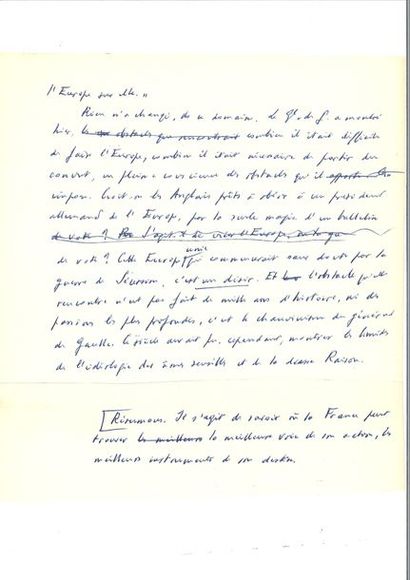 l'Europe sur elle."
Rien n'a changé, de ce domaine. Le Gl. de G. a montré
hier, les obstacles que rencontrait combien il était difficile
de faire l'Europe, combien il était nécessaire de partir du
concret, en pleine conscience des obstacles qu'il apporte
impose. Croit-on les Anglais prêts à obéir à un président
allemand de l'Europe, par la seule magie d'un bulletin
de vote ? S'agit-il de créer l'Europe
de vote ? Cette Europe unie qui commencerait sans doute par la
guerre de Sécession, c'est un désir. Et l'obstacle qu'elle
rencontre n'est pas fait de mille ans d'histoire, ni des
passions les plus profondes, c'est le chauvinisme du général
de Gaulle. Le siècle aurait pu, cependant, montrer les limites
de l'idéologie des âmes sensibles et de la déesse Raison.
[Résumons. Il s'agit de savoir où la France peut
trouver les meilleurs la meilleure voie de son action, les
meilleurs instruments de son destin.